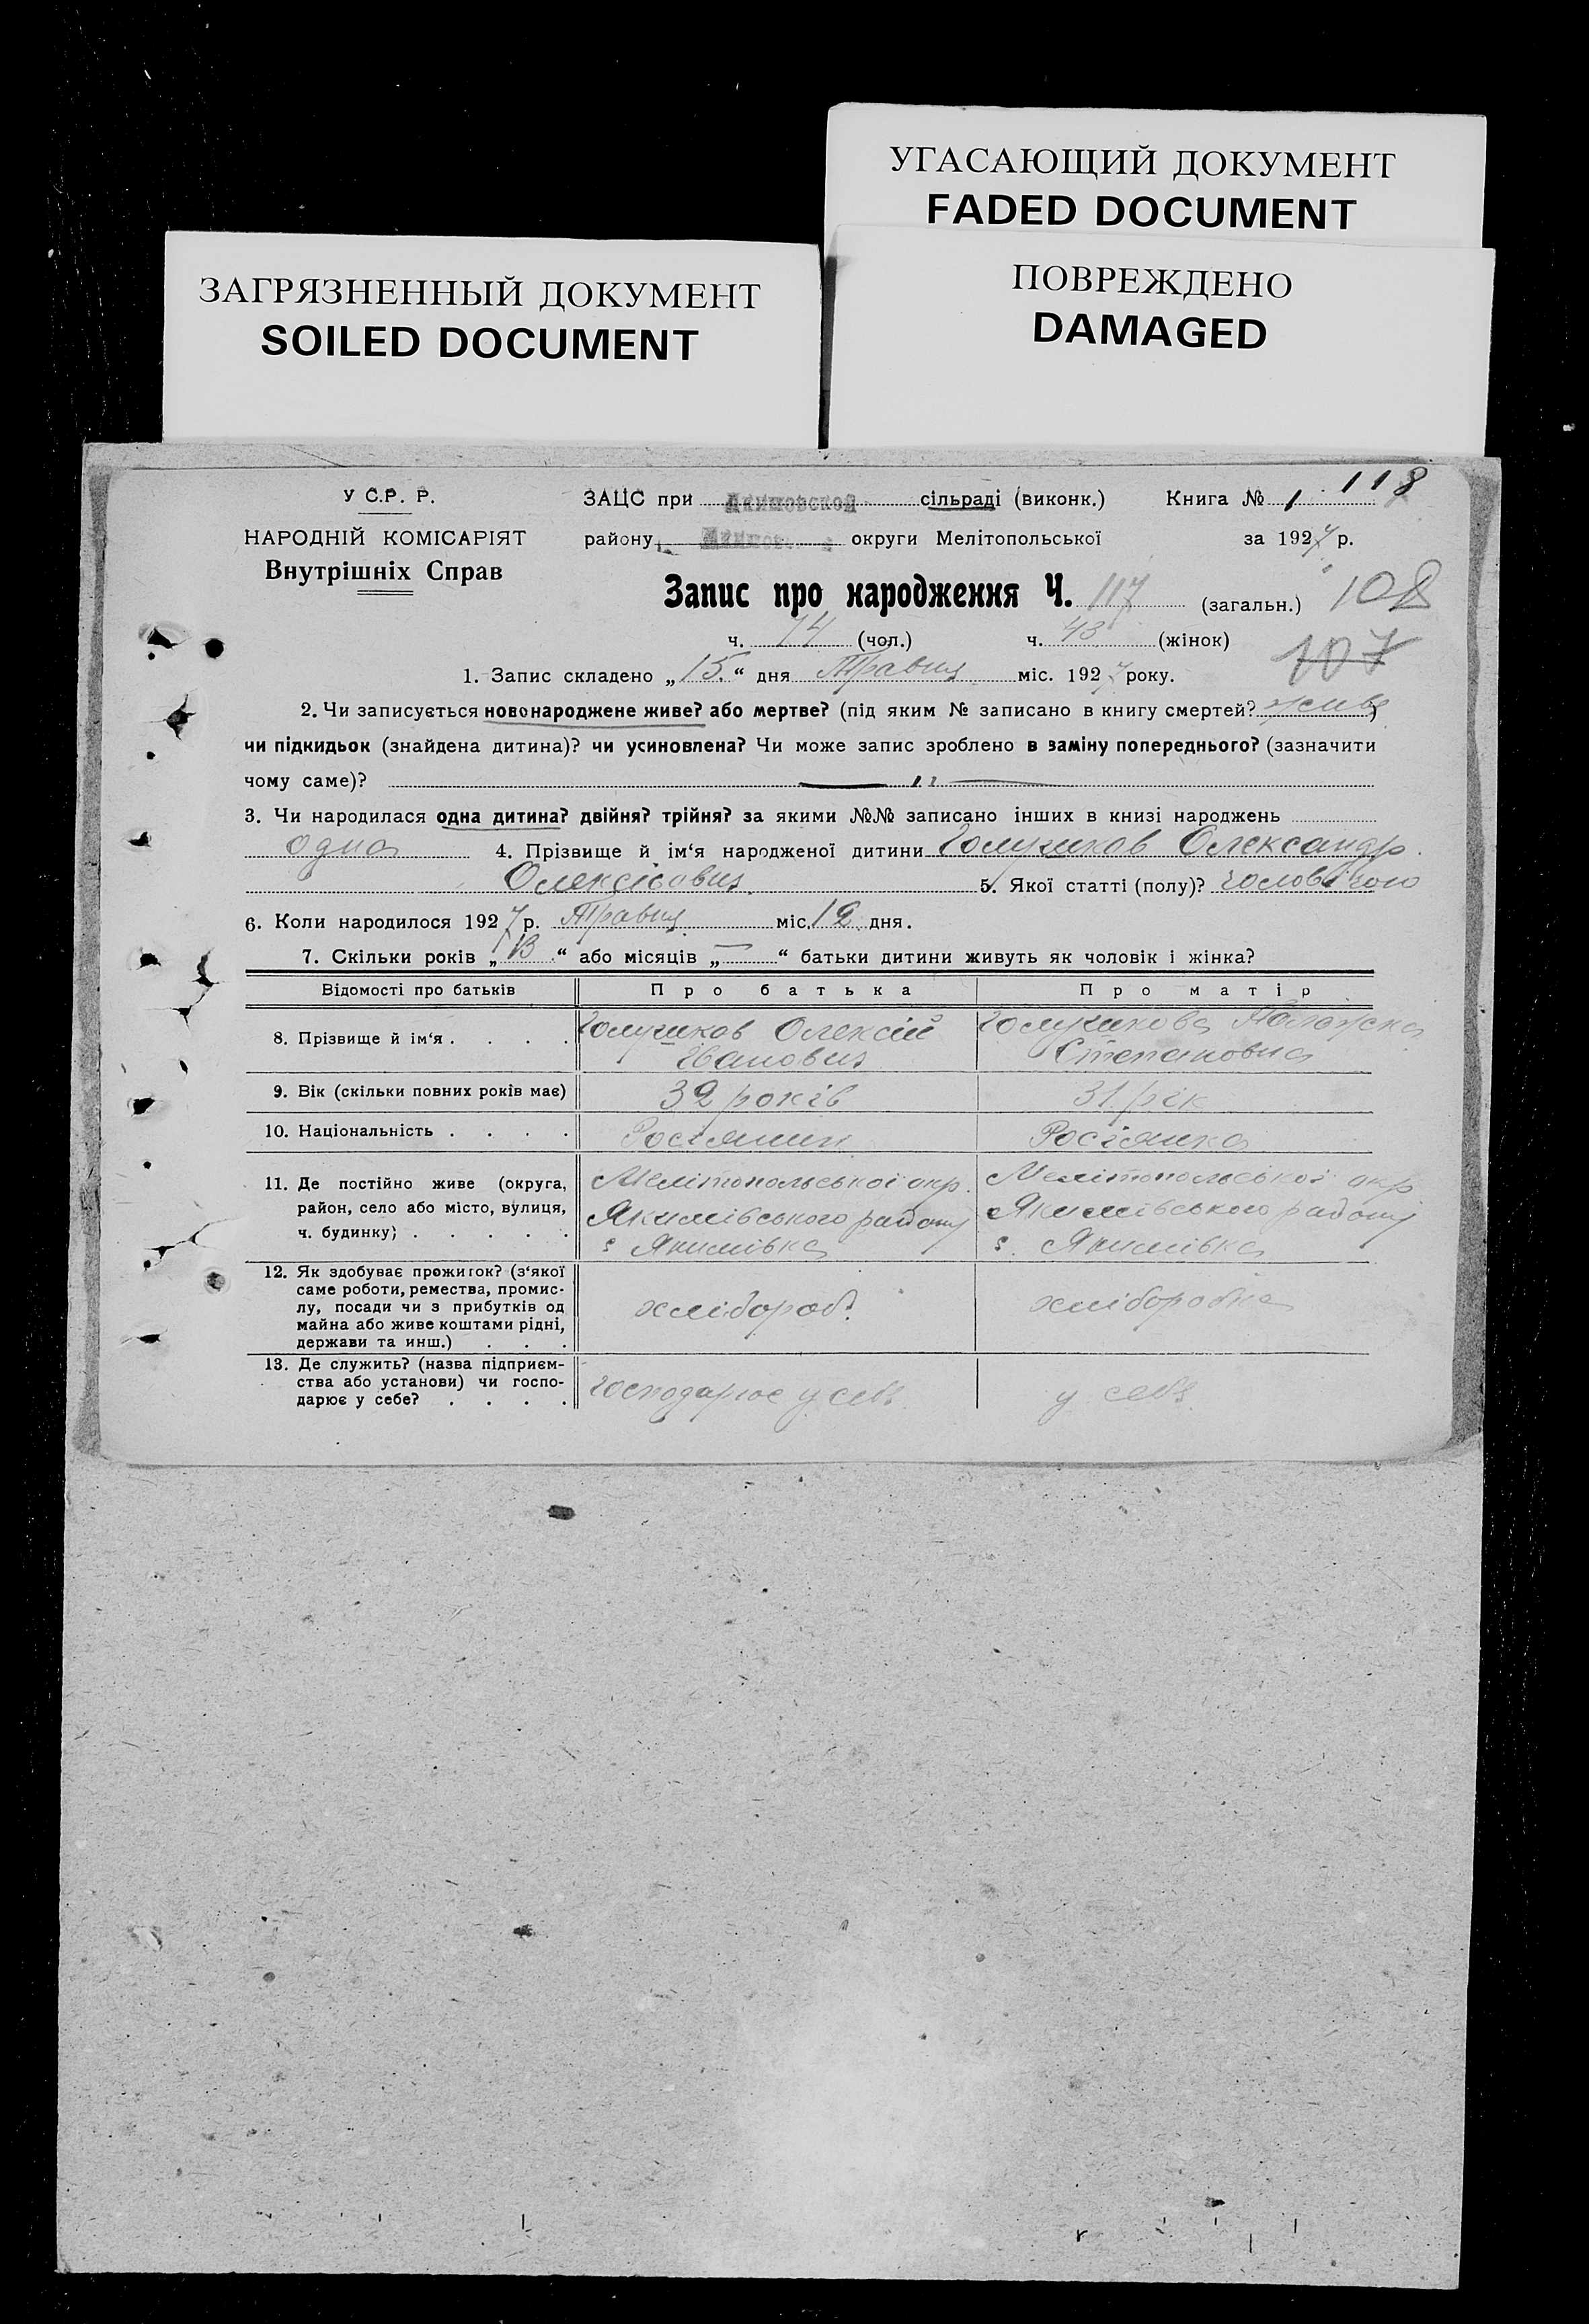 УГАСАЮЩИЙ ДОКУМЕНТ
FADED DOCUMENT
ЗАГРЯЗНЕННЫЙ ДОКУМЕНТ
SOILED DOCUMENT
ПОВРЕЖДЕНО
DAMAGED
118
У С.Р. Р.
ЗАЦС при сільраді (виконк.) Книга № 1
НАРОДНІЙ КОМІСАРІЯТ
району округи Мелітопольської за 1927 р.
Внутрішніх Справ
Запис про народження Ч. 117 (загальн.) 108
ч. 74 (чол.) ч. 43 (жінок) 107
1. Запис складено „15.“ дня Травня міс. 1927 року.
2. Чи записується новонароджене живе? або мертве? (під яким № записано в книгу смертей? живе)
чи підкидьок (знайдена дитина)? чи усиновлена? Чи може запис зроблено в заміну попереднього? (зазначити
чому саме)?
3. Чи народилася одна дитина? двійня? трійня? за якими №№ записано інших в книзі народжень
одна 4. Прізвище й ім‘я народженої дитини Олександр
Олексієвич 5. Якої статті (полу)?
6. Коли народилося 1927 р. Травня міс. 12 дня.
7. Скільки років „13“ або місяців „—“ батьки дитини живуть як чоловік і жінка?
Відомості про батьків Про батька Про матір
8. Прізвище й ім‘я . . . . Олексій
Іванович Степановна
9. Вік (скільки повних років має) 32 років 31 рік
10. Національність . . . . Росіянин Росіянка
11. Де постійно живе (округа, Мелітопольської окр. Мелітопольської окр
район, село або місто, вулиця, Якимівського району Якимівського району
ч. будинку) . . . . . с Якимівка с. Якимівка
12. Як здобуває прожиток? (з‘якої
саме роботи, ремества, промис-
лу, посади чи з прибутків од хлібороб. хліборобка
майна або живе коштами рідні,
держави та инш.) . . .
13. Де служить? (назва підприєм-
ства або установи) чи госпо- господарює у себе у себе
дарює у себе? . . . .